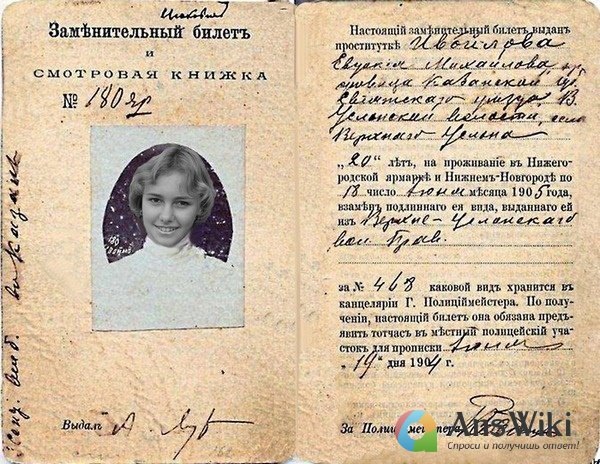 Замѣнительный билетъ
и
СМОТРОВАЯ КНИЖКА
№ 180 яр
Выдалъ
Настоящій замѣнительный билетъ выданъ
проституткѣ Ивойлова
Евдокія Михайлова, кр
Казанской губ
уѣзда В.
Услонской волости, села
Верхняго Услона
„20“ лѣтъ, на проживаніе въ Нижего-
родской ярмаркѣ и Нижнемъ-Новгородѣ по
18 число мѣсяца 1905 года,
взамѣнъ подлиннаго ея вида, выданнаго ей
изъ Верхне-Услонскаго
вол Прав.
за № 468 каковой видъ хранится въ
канцеляріи Г. Полиціймейстера. По полу-
ченіи, настоящій билетъ она обязана предъ-
явить тотчасъ въ мѣстный полицейскій уча-
стокъ для прописки
„19“ дня 1904 г.
За Полиціймейстера
AnsWiki
Спроси и получишь ответ!